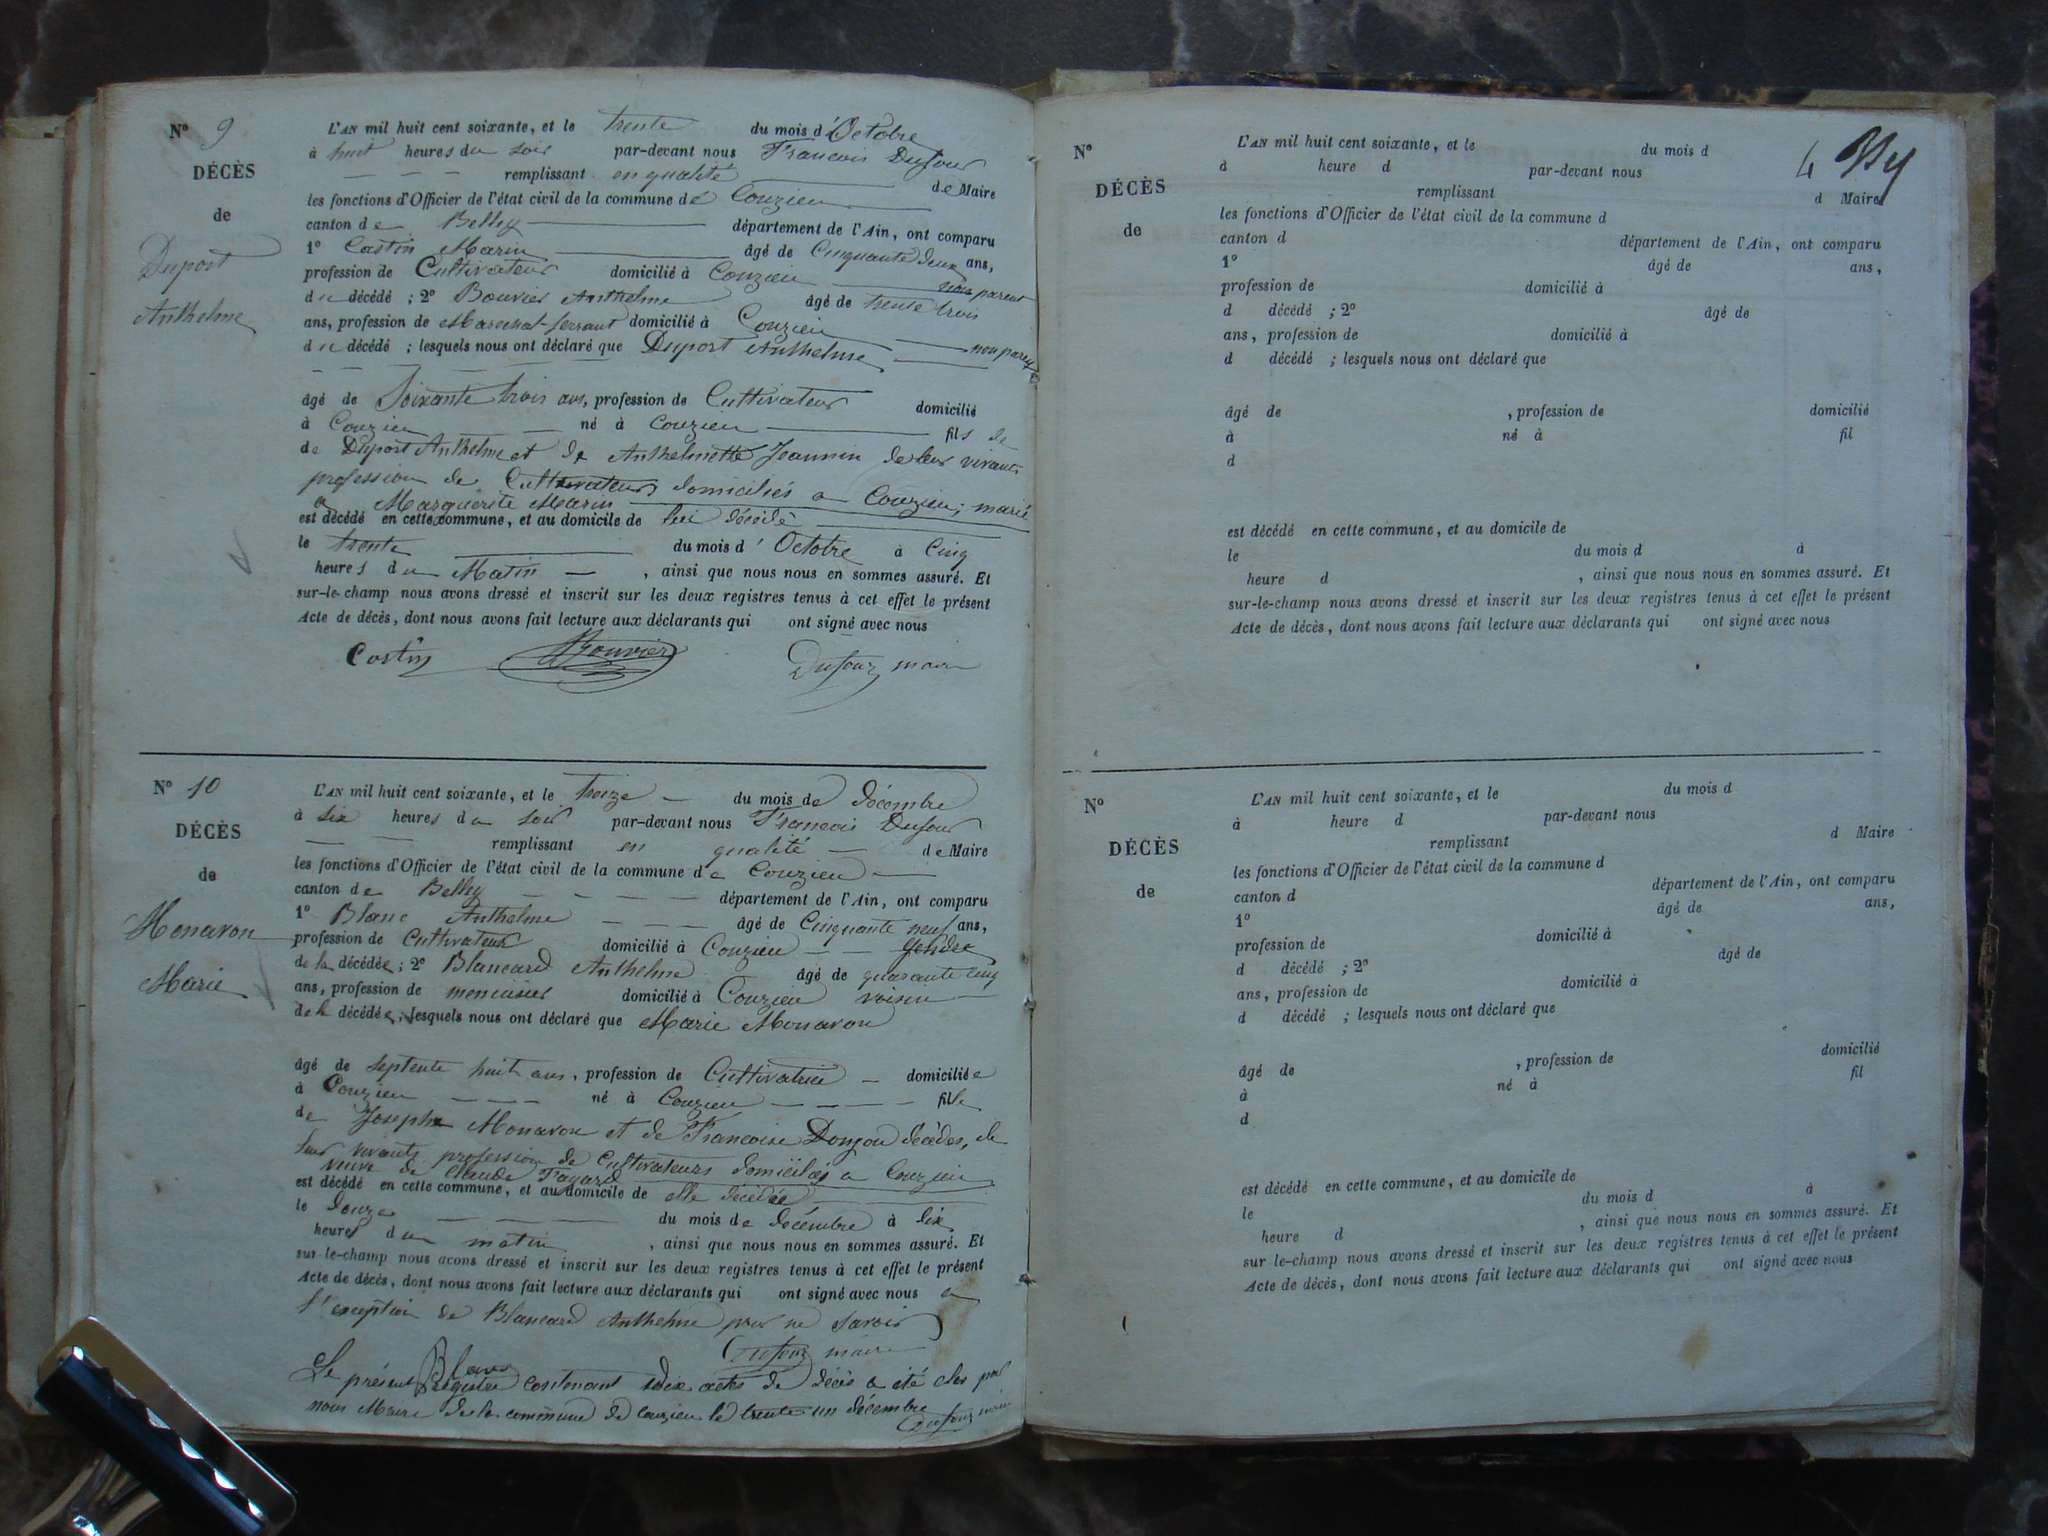 Nº 9
DÉCÈS
de
Duport
Anthelme
L'AN mil huit cent soixante, et le trente du mois d'Octobre
à huit heures du soir par-devant nous Francois Dufour
remplissant en qualité de Maire
les fonctions d'Officier de l'état civil de la commune de Couzieu
canton de Belley département de l'Ain, ont comparu
1º Castin Marin âgé de Cinquante deux ans,
profession de Cultivateur domicilié à Couzieu non parent
du décédé ; 2º Bouvier Anthelme âgé de trente trois
ans, profession de Marechal-ferrant domicilié à Couzieu
du décédé ; lesquels nous ont déclaré que Duport Anthelme non parent
âgé de Soixante trois ans, profession de Cultivateur domicilié
à Couzieu né à Couzieu fils de
de Duport Anthelme et de Anthelmette Jeannin de leur vivants
profession de Cultivateurs domiciliés a Couzieu; marié
a Marguerite Marin
est décédé en cette commune, et au domicile de lui décédé
le trente du mois d'Octobre à Cinq
heures du Matin , ainsi que nous nous en sommes assuré. Et
sur-le-champ nous avons dressé et inscrit sur les deux registres tenus à cet effet le présent
Acte de décès, dont nous avons fait lecture aux déclarants qui ont signé avec nous
Castin Bouvier Dufour maire
Nº 10
DÉCÈS
de
Monavon
Marie
L'AN mil huit cent soixante, et le treize du mois de décembre
à six heures du soir par-devant nous Francois Dufour
remplissant en qualité de Maire
les fonctions d'Officier de l'état civil de la commune de Couzieu
canton de Belley département de l'Ain, ont comparu
1º Blanc Anthelme âgé de Cinquante neuf ans,
profession de Cultivateur domicilié à Couzieu Gendre
de la décédée ; 2º Blancard Anthelme âgé de quarante cinq
ans, profession de menuisier domicilié à Couzieu voisin
de la décédée ; lesquels nous ont déclaré que Marie Monavon
âgé de septente huit ans, profession de Cultivatrice domiciliée
à Couzieu né à Couzieu fille
de Joseph Monavon et de Francoise Donjou décédés, de
leur vivants profession de Cultivateurs domiciliés a Couzieu
veuve de Claude Fayard
est décédé en cette commune, et au domicile de elle décédée
le douze du mois de décembre à dix
heures du matin , ainsi que nous nous en sommes assuré. Et
sur-le-champ nous avons dressé et inscrit sur les deux registres tenus à cet effet le présent
Acte de décès, dont nous avons fait lecture aux déclarants qui ont signé avec nous a
l'exception de Blancard Anthelme pour ne savoir
Dufour maire
Blanc
Le présent Registre contenant dix actes de décès a été clos par
nous Maire de la commune de Couzieu le trente un décembre
Dufour maire
4
Nº
DÉCÈS
de
L'AN mil huit cent soixante, et le du mois d
à heure d par-devant nous
remplissant d Maire
les fonctions d'Officier de l'état civil de la commune d
canton d département de l'Ain, ont comparu
1º âgé de ans,
profession de domicilié à
d décédé ; 2º âgé de
ans, profession de domicilié à
d décédé ; lesquels nous ont déclaré que
âgé de , profession de domicilié
à né à fil
d
est décédé en cette commune, et au domicile de
le du mois d à
heure d , ainsi que nous nous en sommes assuré. Et
sur-le-champ nous avons dressé et inscrit sur les deux registres tenus à cet effet le présent
Acte de décès, dont nous avons fait lecture aux déclarants qui ont signé avec nous
Nº
DÉCÈS
de
L'AN mil huit cent soixante, et le du mois d
à heure d par-devant nous
remplissant d Maire
les fonctions d'Officier de l'état civil de la commune d
canton d département de l'Ain, ont comparu
1º âgé de ans,
profession de domicilié à
d décédé ; 2º âgé de
ans, profession de domicilié à
d décédé ; lesquels nous ont déclaré que
âgé de , profession de domicilié
à né à fil
d
est décédé en cette commune, et au domicile de
le du mois d à
heure d , ainsi que nous nous en sommes assuré. Et
sur le-champ nous avons dressé et inscrit sur les deux registres tenus à cet effet le présent
Acte de décès, dont nous avons fait lecture aux déclarants qui ont signé avec nous